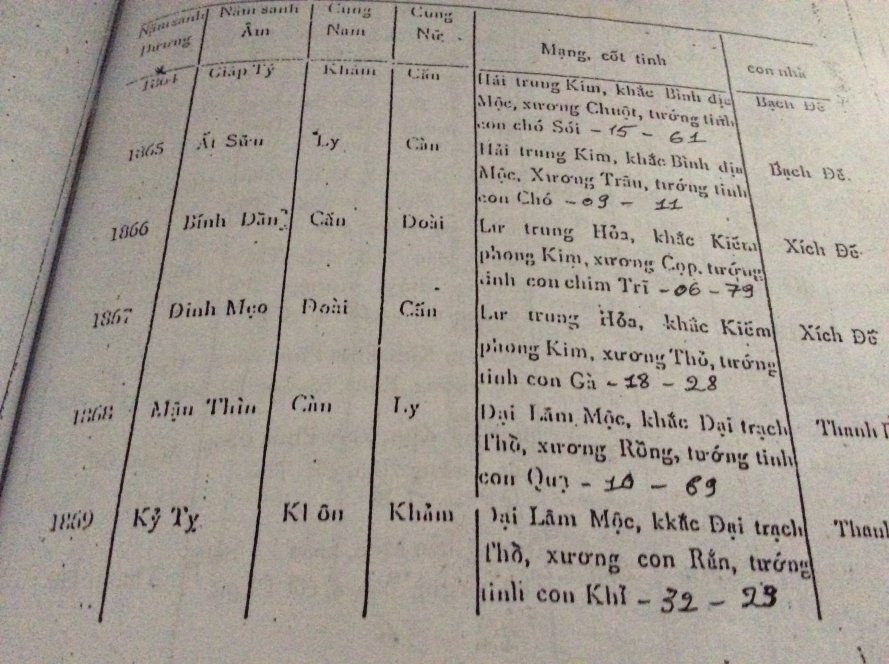 Năm sanh Dương | Năm sanh Âm | Cung Nam | Cung Nữ | Mạng, cốt tinh | con nhà
1864 Giáp Tý Khảm Cấn Hải trung Kim, khắc Bình địa Bạch Đế
Mộc, xương Chuột, tướng tinh
con chó Sói - 15 - 61
1865 Ất Sửu Ly Càn Hải trung Kim, khắc Bình địa Bạch Đế.
Mộc, Xương Trâu, tướng tinh
con Chó - 09 - 11
1866 Bính Dần Cấn Đoài Lư trung Hỏa, khắc Kiếm Xích Đế
phong Kim, xương Cọp, tướng
tinh con chim Trĩ - 06 - 79
1867 Đinh Mẹo Đoài Cấn Lư trung Hỏa, khắc Kiếm Xích Đế
phong Kim, xương Thỏ, tướng
tinh con Gà - 18 - 28
1868 Mậu Thìn Càn Ly Đại Lâm Mộc, khắc Đại trạch Thanh
Thổ, xương Rồng, tướng tinh
con Quạ - 10 - 69
1869 Kỷ Tỵ Khôn Khảm Đại Lâm Mộc, kkắc Đại trạch Thanh
Thổ, xương con Rắn, tướng
tinh con Khỉ - 32 - 23